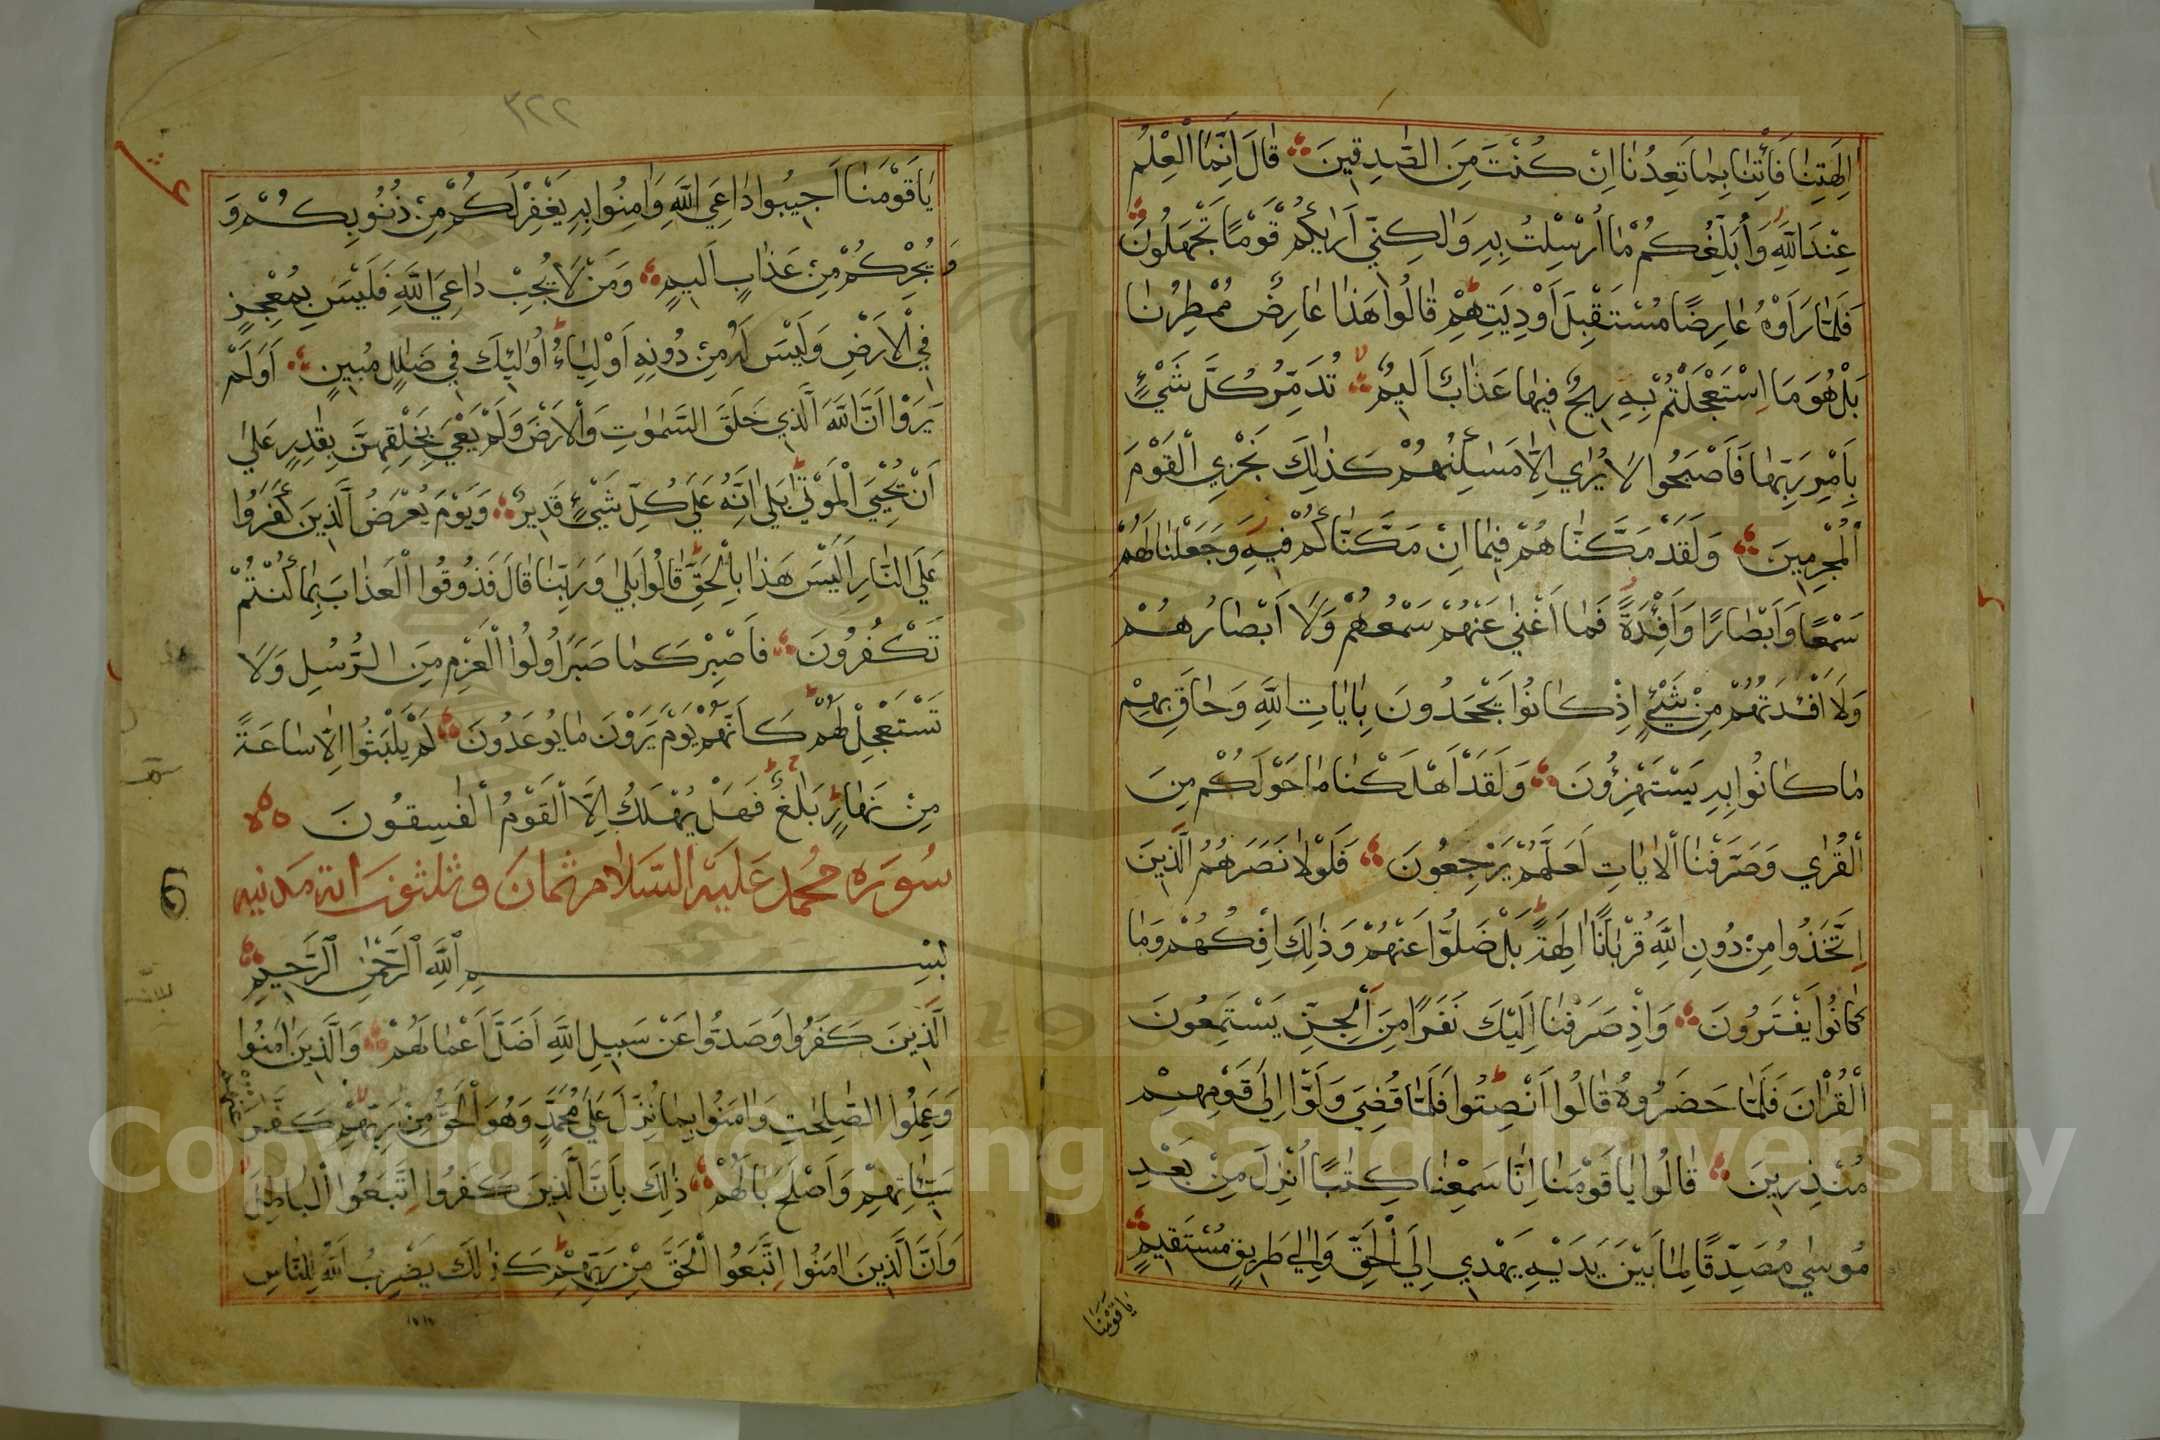 اٰلِهَتِنٰا فَأْتِنٰا بِمٰا تَعِدُنٰا اِنْ كُنْتَ مِنَ الصّٰدِقِينَ قٰالَ اِنَّمَا الْعِلْمُ
عِنْدَ اللّٰهِ وَاُبَلِّغُكُمْ مٰا اُرْسِلْتُ بِهِ وَلٰكِنِّي اَرٰيكُمْ قَوْمًا تَجْهَلُونَ
فَلَمّٰا رَاَوْهُ عٰارِضًا مُسْتَقْبِلَ اَوْدِيَتِهِمْ قٰالُوا هَذٰا عٰارِضٌ مُمْطِرُنٰا
بَلْ هُوَ مَا اسْتَعْجَلْتُمْ بِهِ رِيحٌ فِيهٰا عَذٰابٌ اَلِيمٌ تُدَمِّرُ كُلَّ شَيْءٍ
بِاَمْرِ رَبِّهٰا فَاَصْبَحُوا لٰا يُرٰي اِلّٰا مَسٰكِنُهُمْ كَذٰلِكَ نَجْزِي الْقَوْمَ
الْمُجْرِمِينَ وَلَقَدْ مَكَّنّٰاهُمْ فِيمٰا اِنْ مَكَّنّٰاكُمْ فِيهِ وَجَعَلْنٰا لَهُمْ
سَمْعًا وَاَبْصٰارًا وَاَفْئِدَةً فَمٰا اَغْنٰي عَنْهُمْ سَمْعُهُمْ وَلٰا اَبْصٰارُهُمْ
وَلٰا اَفْئِدَتُهُمْ مِنْ شَيْءٍ اِذْ كٰانُوا يَجْحَدُونَ بِاٰيٰاتِ اللّٰهِ وَحٰاقَ بِهِمْ
مٰا كٰانُوا بِهِ يَسْتَهْزِؤُنَ وَلَقَدْ اَهْلَكْنٰا مٰا حَوْلَكُمْ مِنَ
الْقُرٰي وَصَرَّفْنَا الْاٰيٰاتِ لَعَلَّهُمْ يَرْجِعُونَ فَلَوْلٰا نَصَرَهُمُ الَّذِينَ
اتَّخَذُوا مِنْ دُونِ اللّٰهِ قُرْبٰانًا اٰلِهَةً بَلْ ضَلُّوا عَنْهُمْ وَذٰلِكَ اِفْكُهُمْ وَمٰا
كٰانُوا يَفْتَرُونَ وَاِذْ صَرَفْنٰا اِلَيْكَ نَفَرًا مِنَ الْجِنِّ يَسْتَمِعُونَ
الْقُرْاٰنَ فَلَمّٰا حَضَرُوهُ قٰالُوا اَنْصِتُوا فَلَمّٰا قُضِيَ وَلَّوْا اِلَي قَوْمِهِمْ
مُنْذِرِينَ قٰالُوا يٰا قَوْمَنٰا اِنّٰا سَمِعْنٰا كِتٰبًا اُنْزِلَ مِنْ بَعْدِ
مُوسٰي مُصَدِّقًا لِمٰا بَيْنَ يَدَيْهِ يَهْدِي اِلَي الْحَقِّ وَاِلٰي طَرِيقٍ مُسْتَقِيمٍ
يٰا قَوْمَنَا
٣٢٢
يٰا قَوْمَنٰا اَجِيبُوا دٰاعِيَ اللّٰهِ وَاٰمِنُوا بِهِ يَغْفِرْ لَكُمْ مِنْ ذُنُوبِكُمْ وَ
وَيُجِرْكُمْ مِنْ عَذٰابٍ اَلِيمٍ وَمَنْ لٰا يُجِبْ دٰاعِيَ اللّٰهِ فَلَيْسَ بِمُعْجِزٍ
فِي الْاَرْضِ وَلَيْسَ لَهُ مِنْ دُونِهِ اَوْلِيٰاءُ اُولٰئِكَ فِي ضَلٰلٍ مُبِينٍ اَوَلَمْ
يَرَوْا اَنَّ اللّٰهَ الَّذِي خَلَقَ السَّمٰوٰتِ وَالْاَرْضَ وَلَمْ يَعْيَ بِخَلْقِهِنَّ بِقٰدِرٍ عَلٰي
اَنْ يُحْيِيَ الْمَوْتٰي بَلٰي اِنَّهُ عَلَي كُلِّ شَيْءٍ قَدِيرٌ وَيَوْمَ يُعْرَضُ الَّذِينَ كَفَرُوا
عَلَي النّٰارِ اَلَيْسَ هَذٰا بِالْحَقِّ قٰالُوا بَلٰي وَرَبِّنٰا قٰالَ فَذُوقُوا الْعَذٰابَ بِمٰا كُنْتُمْ
تَكْفُرُونَ فَاصْبِرْ كَمٰا صَبَرَ اُولُوا الْعَزْمِ مِنَ الرُّسُلِ وَلٰا
تَسْتَعْجِلْ لَهُمْ كَاَنَّهُمْ يَوْمَ يَرَوْنَ مٰا يُوعَدُونَ لَمْ يَلْبَثُوا اِلّٰا سٰاعَةً
مِنْ نَهٰارٍ بَلٰغٌ فَهَلْ يُهْلَكُ اِلَّا الْقَوْمُ الْفٰسِقُونَ
سُورَه مُحُمَّد عَلَيْه السَّلَام ثمَانَ وثلثونَ اية مَدنيه
بِسْمِ اللّٰهِ الرَّحْمٰنِ الرَّحِيمِ
الَّذِينَ كَفَرُوا وَصَدُّوا عَنْ سَبِيلِ اللّٰهِ اَضَلَّ اَعْمٰالَهُمْ وَالَّذِينَ اٰمَنُوا
وَعَمِلُوا الصّٰلِحٰتِ وَاٰمَنُوا بِمٰا نُزِّلَ عَلَي مُحَمَّدٍ وَهُوَ الْحَقُّ مِنْ رَبِّهِمْ كَفَّرَ
عَنْهُمْ
سَيِّاٰتِهِمْ وَاَصْلَحَ بٰالَهُمْ ذٰلِكَ بِاَنَّ الَّذِينَ كَفَرُوا اتَّبَعُوا الْبٰاطِلَ
وَاَنَّ الَّذِينَ اٰمَنُوا اتَّبَعُوا الْحَقَّ مِنْ رَبِّهِمْ كَذٰلِكَ يَضْرِبُ اللّٰهُ لِلنّٰاسِ
Copyright © King Saud University